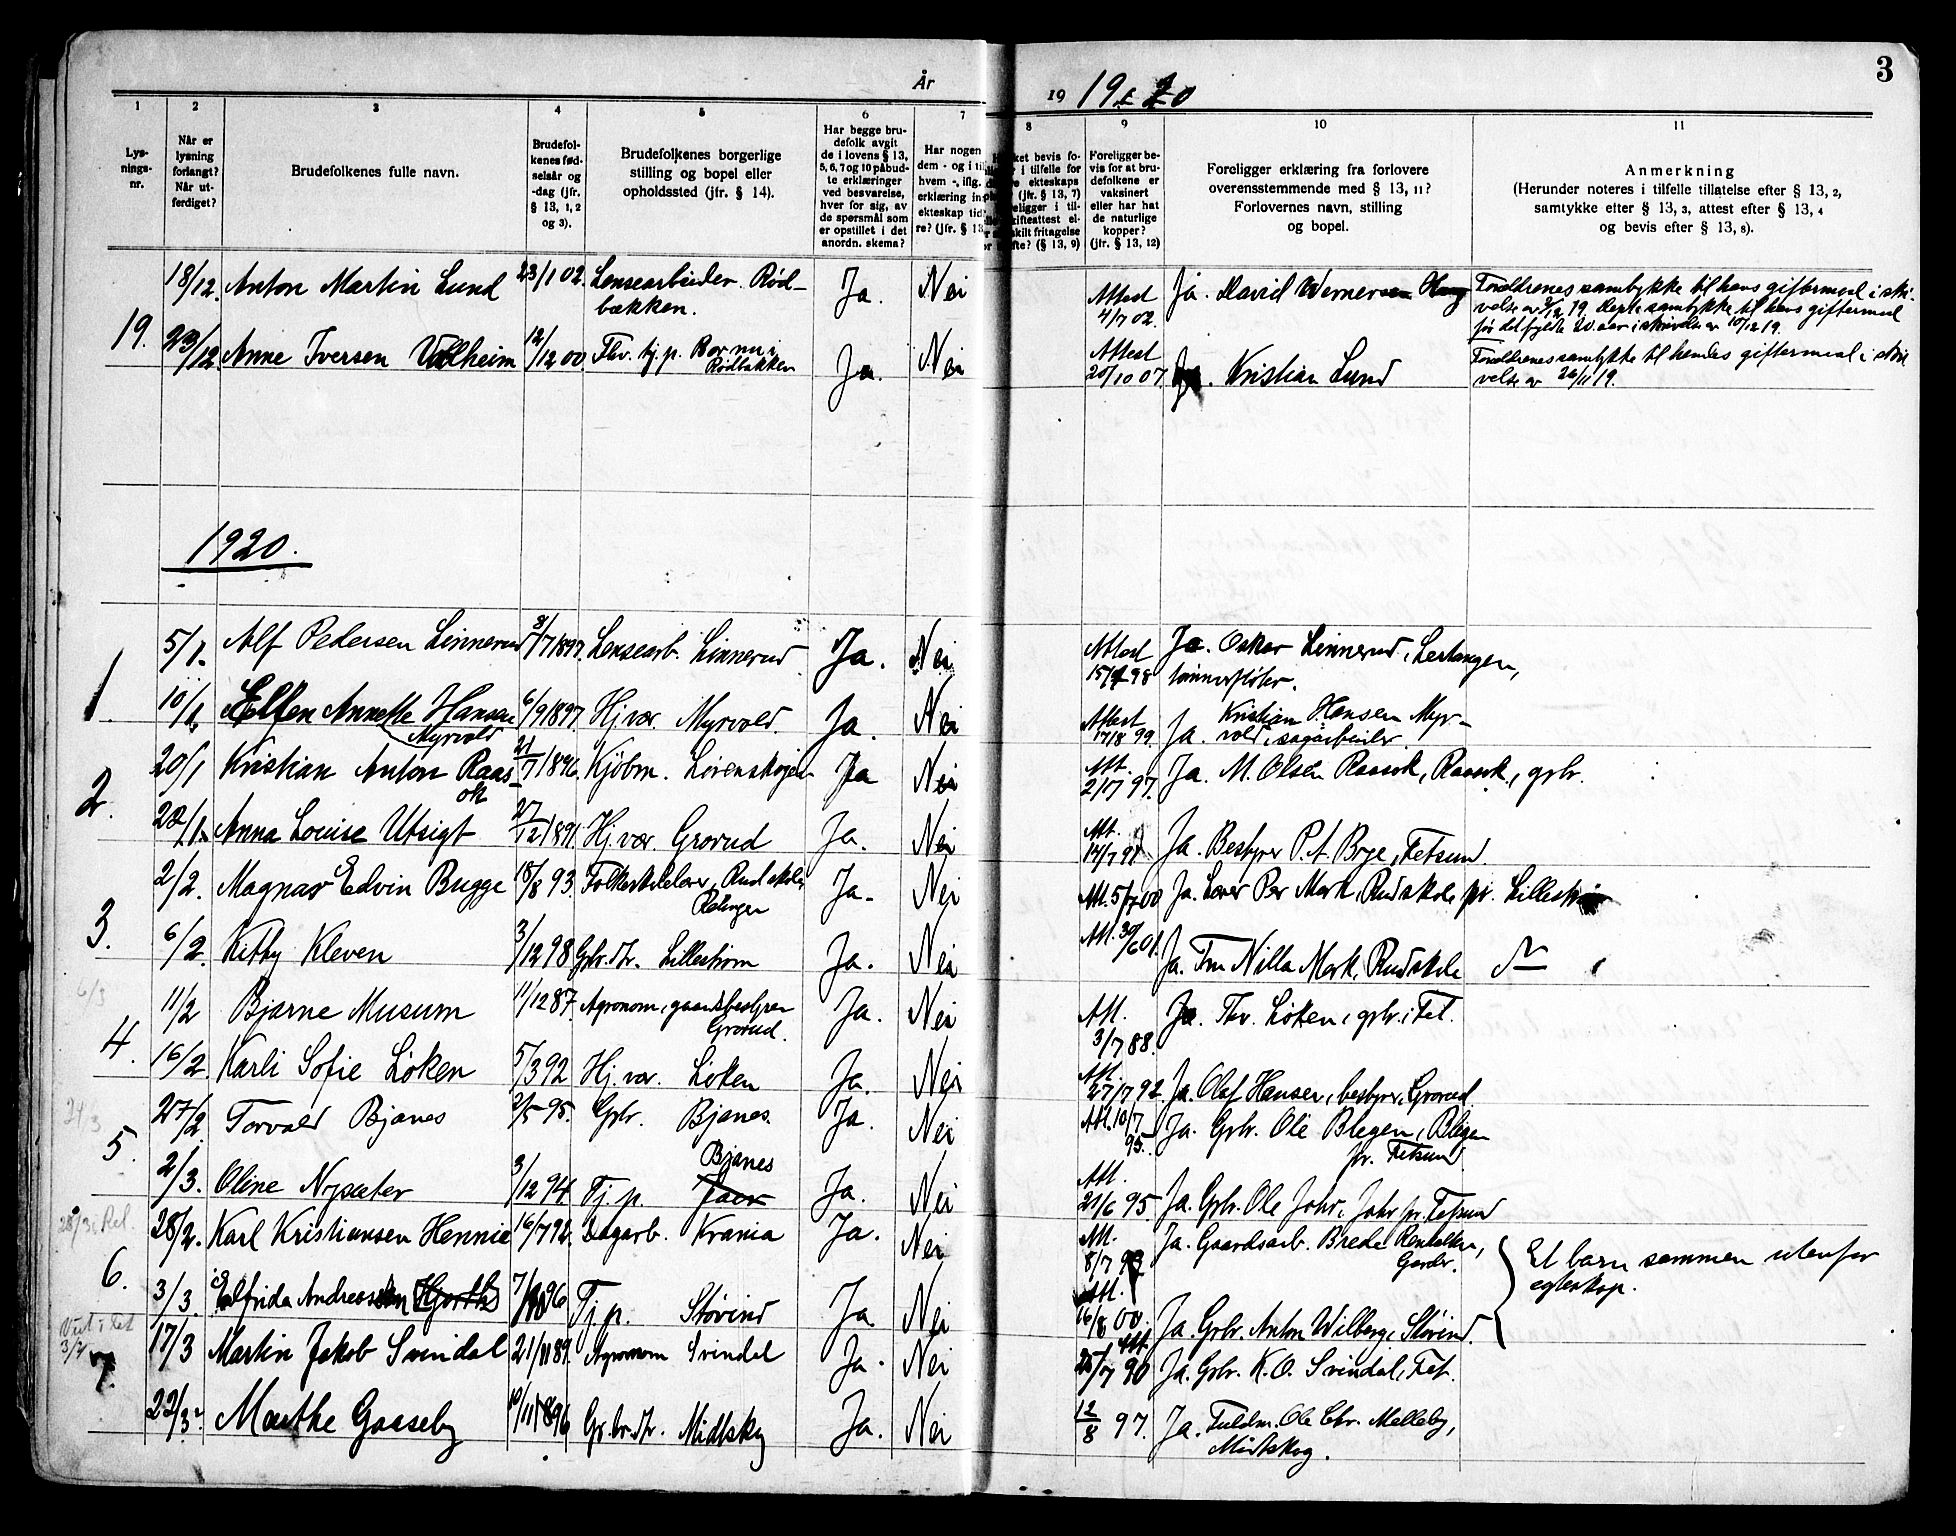 3
År 19 1920
1 2 3 4 5 6 7 8 9 10 11
Lys-
nings-
nr.
Når er
lysning
forlangt?
Når ut-
ferdiget?
Brudefolkenes fulle navn.
Brudefol-
kenes fød-
selsår og
-dag (jfr.
§ 13, 1, 2
og 3).
Brudefolkenes borgerlige
stilling og bopel eller
opholdssted (jfr. § 14).
Har begge bru-
defolk avgit
de i lovens § 13,
5, 6, 7 og 10 påbud-
te erklæringer
ved besvarelse,
hver for sig, av
de spørsmål som
er opstillet i det
anordn. skema?
Har nogen
dem - og i til
hvem -, iflg.
erklæring in
ekteskap tid
re? (jfr. § 13
ket bevis fo-
i tilfelle for
ekteskaps
(jfr. § 13, 7)
eligger i til-
kifteattest el-
skilt fritagelse
fte? (§ 13, 9)
Foreligger be-
vis for at bru-
defolkene er
vaksinert
eller har hat
de naturlige
kopper?
(jfr. § 13, 12)
Foreligger erklæring fra forlovere
overensstemmende med § 13, 11?
Forlovernes navn, stilling
og bopel.
Anmerkning
(Herunder noteres i tilfelle tillatelse efter § 13, 2,
samtykke efter § 13, 3, attest efter § 13, 4
og bevis efter § 13, 8).
18/12. Anton Martin Lund 23/1 02. Lensearbeider. Rød-
bækken. Ja. Nei Attest
4/7 02. Ja. David Wernersen Haug Foreldrenes samtykke til hans giftermaal i skri-
velse av 3/12 19. Depts samtykke til hans giftermaal
før det fylte 20. aar i skrivelse av 10/12 19.
19. 23/12. Anne Iversen Valheim 12/12 00 Fhv. tj.p. Bor nu i
Rødbækken Ja. Nei Attest
20/10 07. Ja. Kristian Lund Foreldrenes samtykke til hendes giftermaal i skri
velse av 26/11 19.
1920.
1. 5/1. Alf Pedersen Linnerud 8/7 1897. Lensearb. Linnerud Ja. Nei Attest
15/7 98 Ja. Oskar Linnerud, Lertangen,
tømmerfløter.
10/1. Ellen Annette Hansen
Myrvold 6/9 1897. Hj.vær. Myrvold. Ja. Nei Attest
17/8 99. Ja. Kristian Hansen Myr-
vold, sagarbeider.
2. 20/1 Kristian Anton Raas-
ok 21/7 1896. Kjøbm. Lørenskogen Ja Nei Att.
2/7 97. Ja. M. Olsen Raasok, Raasok, grbr.
22/1. Anna Louise Utsigt 27/12 1891. Hj.vær. Grorud Ja. Nei Att.
14/7 92 Ja. Bestyrer P. A. Brye, Fetsund.
3. 2/2. Magnar Edvin Bugge 18/8 93. Folkeskolelærer, Rud skole,
Rælingen Ja. Nei Att. 5/7 00 Ja. Lærer Per Mork, Rud skole pr. Lillestrøm
6/2. Kitty Kleven 3/12 98 Grbr.dtr. Lillestrøm Ja. Nei Att. 30/6 01. Ja. Fru Nilla Mork, Rud skole
6/3
4. 11/2 Bjarne Musum 11/12 87. Agronom, gaardsbestyrer
Grorud. Ja. Nei Att.
3/7 88. Ja. Thv. Løken, grbr. i Fet.
16/2. Karli Sofie Løken 5/3 92 Hj.vær. Løken Ja. Nei Att.
27/7 92. Ja. Olaf Hansen, bestyrer, Grorud.
24/3
5. 27/2. Torvald Bjanes 2/5 95. Grbr. Bjanes. Ja. Nei Att. 10/7
95. Ja. Grbr. Ole Blegen, Blegen
pr. Fetsund
2/3. Oline Nysæter 3/12 94. Tj.p. Bjanes
Jaer Ja. Nei Att.
21/6 95. Ja. Grbr. Ole Johr, Johr pr. Fetsund
28/3 i Ræl.
6. 28/2. Karl Kristiansen Hennie 16/7 92. Dagarb. Krania Ja. Nei Att.
8/7 92 Ja. Gaardsarb. Brede Renkulen,
Garder. Et barn sammen utenfor
egteskap.
3/3. Elfrida Andreassen Hjorths 7/10 96 Tj.p. Støvind Ja Nei Att.
16/8 00. Ja. Grbr. Anton Wilberg, Støvind.
Viet i Fet
3/4
7. 17/3 Martin Jakob Svindal 21/11 89. Agronom Svindal Ja. Nei Att.
25/7 90 Ja. Grbr. K. O. Svindal, Fet.
22/3. Marthe Gaaseby 10/11 1896 Gr.br.dtr. Midtskog Ja. Nei 12/8 97. Ja. Fuldm. Ole Chr. Melleby,
Midtskog.